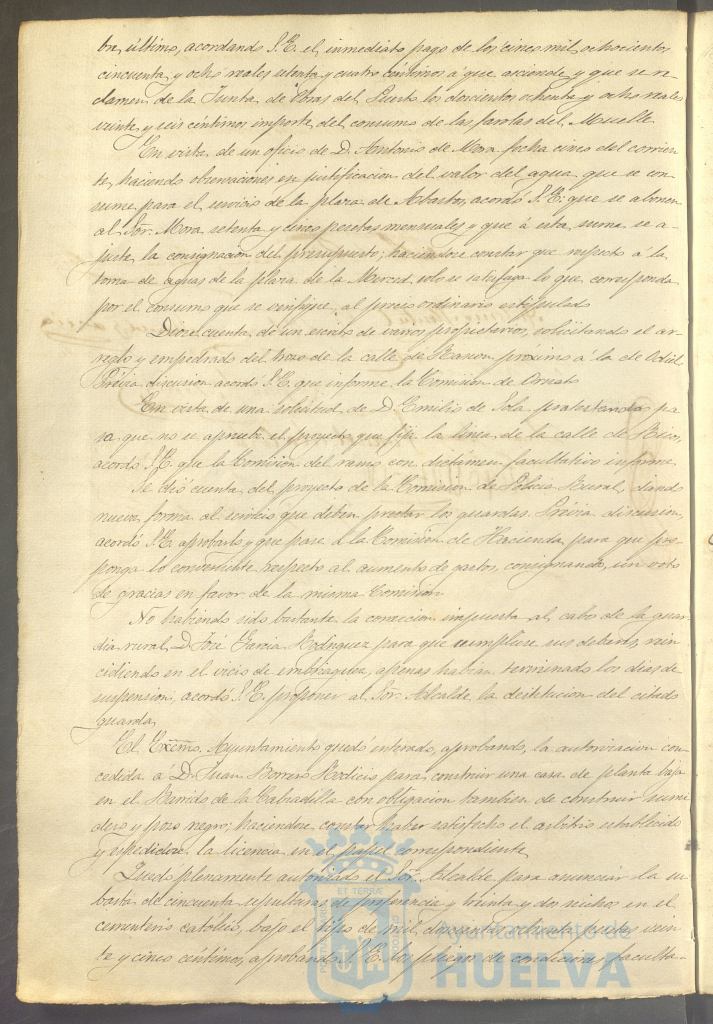 bre último, acordando S. E. el inmediato pago de los cinco mil ochocientos
cincuenta y ocho reales setenta y cuatro céntimos á que asciende y que se re-
clamen de la Junta de Obras del Puerto los doscientos ochenta y ocho reales
veinte y seis céntimos importe del consumo de las farolas del Muelle.
En vista de un oficio de D. Antonio de Mora fecha cinco del corrien-
te, haciendo observaciones en justificacion del valor del agua que se con-
sume para el servicio de la plaza de Abastos, acordó S. E. que se abonen
al Sor. Mora setenta y cinco pesetas mensuales y que á esta suma se a-
juste la consignacion del presupuesto; haciéndose constar que respecto á la
toma de aguas de la plaza de la Merced, solo se satisfaga lo que corresponda
por el consumo que se verifique, al precio ordinario estipulado.
Diose cuenta de un escrito de varios propietarios, solicitando el ar-
reglo y empedrado del trozo de la calle de Rascon próximo á la de Odiel.
Prévia discusion acordó S. E. que informe la Comision de Ornato.
En vista de una solicitud de D. Emilio de Sola protestando pa-
ra que no se apruebe el proyecto que fija la línea de la calle de Rico,
acordó S. E. que la Comision del ramo con dictámen facultativo informe.
Se dió cuenta del proyecto de la Comision de Policia Rural, dando
nueva forma al servicio que deben prestar los guardas. Prévia discusion,
acordó S. E. aprobarlo y que pase á la Comision de Hacienda para que pro-
ponga lo conveniente respecto al aumento de gastos, consignando un voto
de gracias en favor de la misma Comision.
No habiendo sido bastante la correccion impuesta al cabo de la guar-
dia rural D. José Garcia Rodriguez para que cumpliese sus deberes, rein-
cidiendo en el vicio de embriaguez, apenas habian terminado los dias de
suspension, acordó S. E. proponer al Sor. Alcalde la destitucion del citado
guarda.
El Excmo. Ayuntamiento quedó enterado, aprobando, la autorizacion con-
cedida á D. Juan Borrero Rodicio para construir una casa de planta baja
en el Barrido de la Cabradilla con obligacion tambien de construir sumi-
dero y pozo negro; haciéndose constar haber satisfecho el arbitrio establecido
y espedirse la licencia en el papel correspondiente.
Quedó plenamente autorizado el Sor. Alcalde para anunciar la su-
basta de cincuenta sepulturas de preferencia y treinta y dos nichos en el
cementerio católico, bajo el tipo de mil doscientas ochenta pesetas vein-
te y cinco céntimos, aprobando S. E. los pliegos de condiciones faculta-
Ayuntamiento de
HUELVA
ET TERRÆ